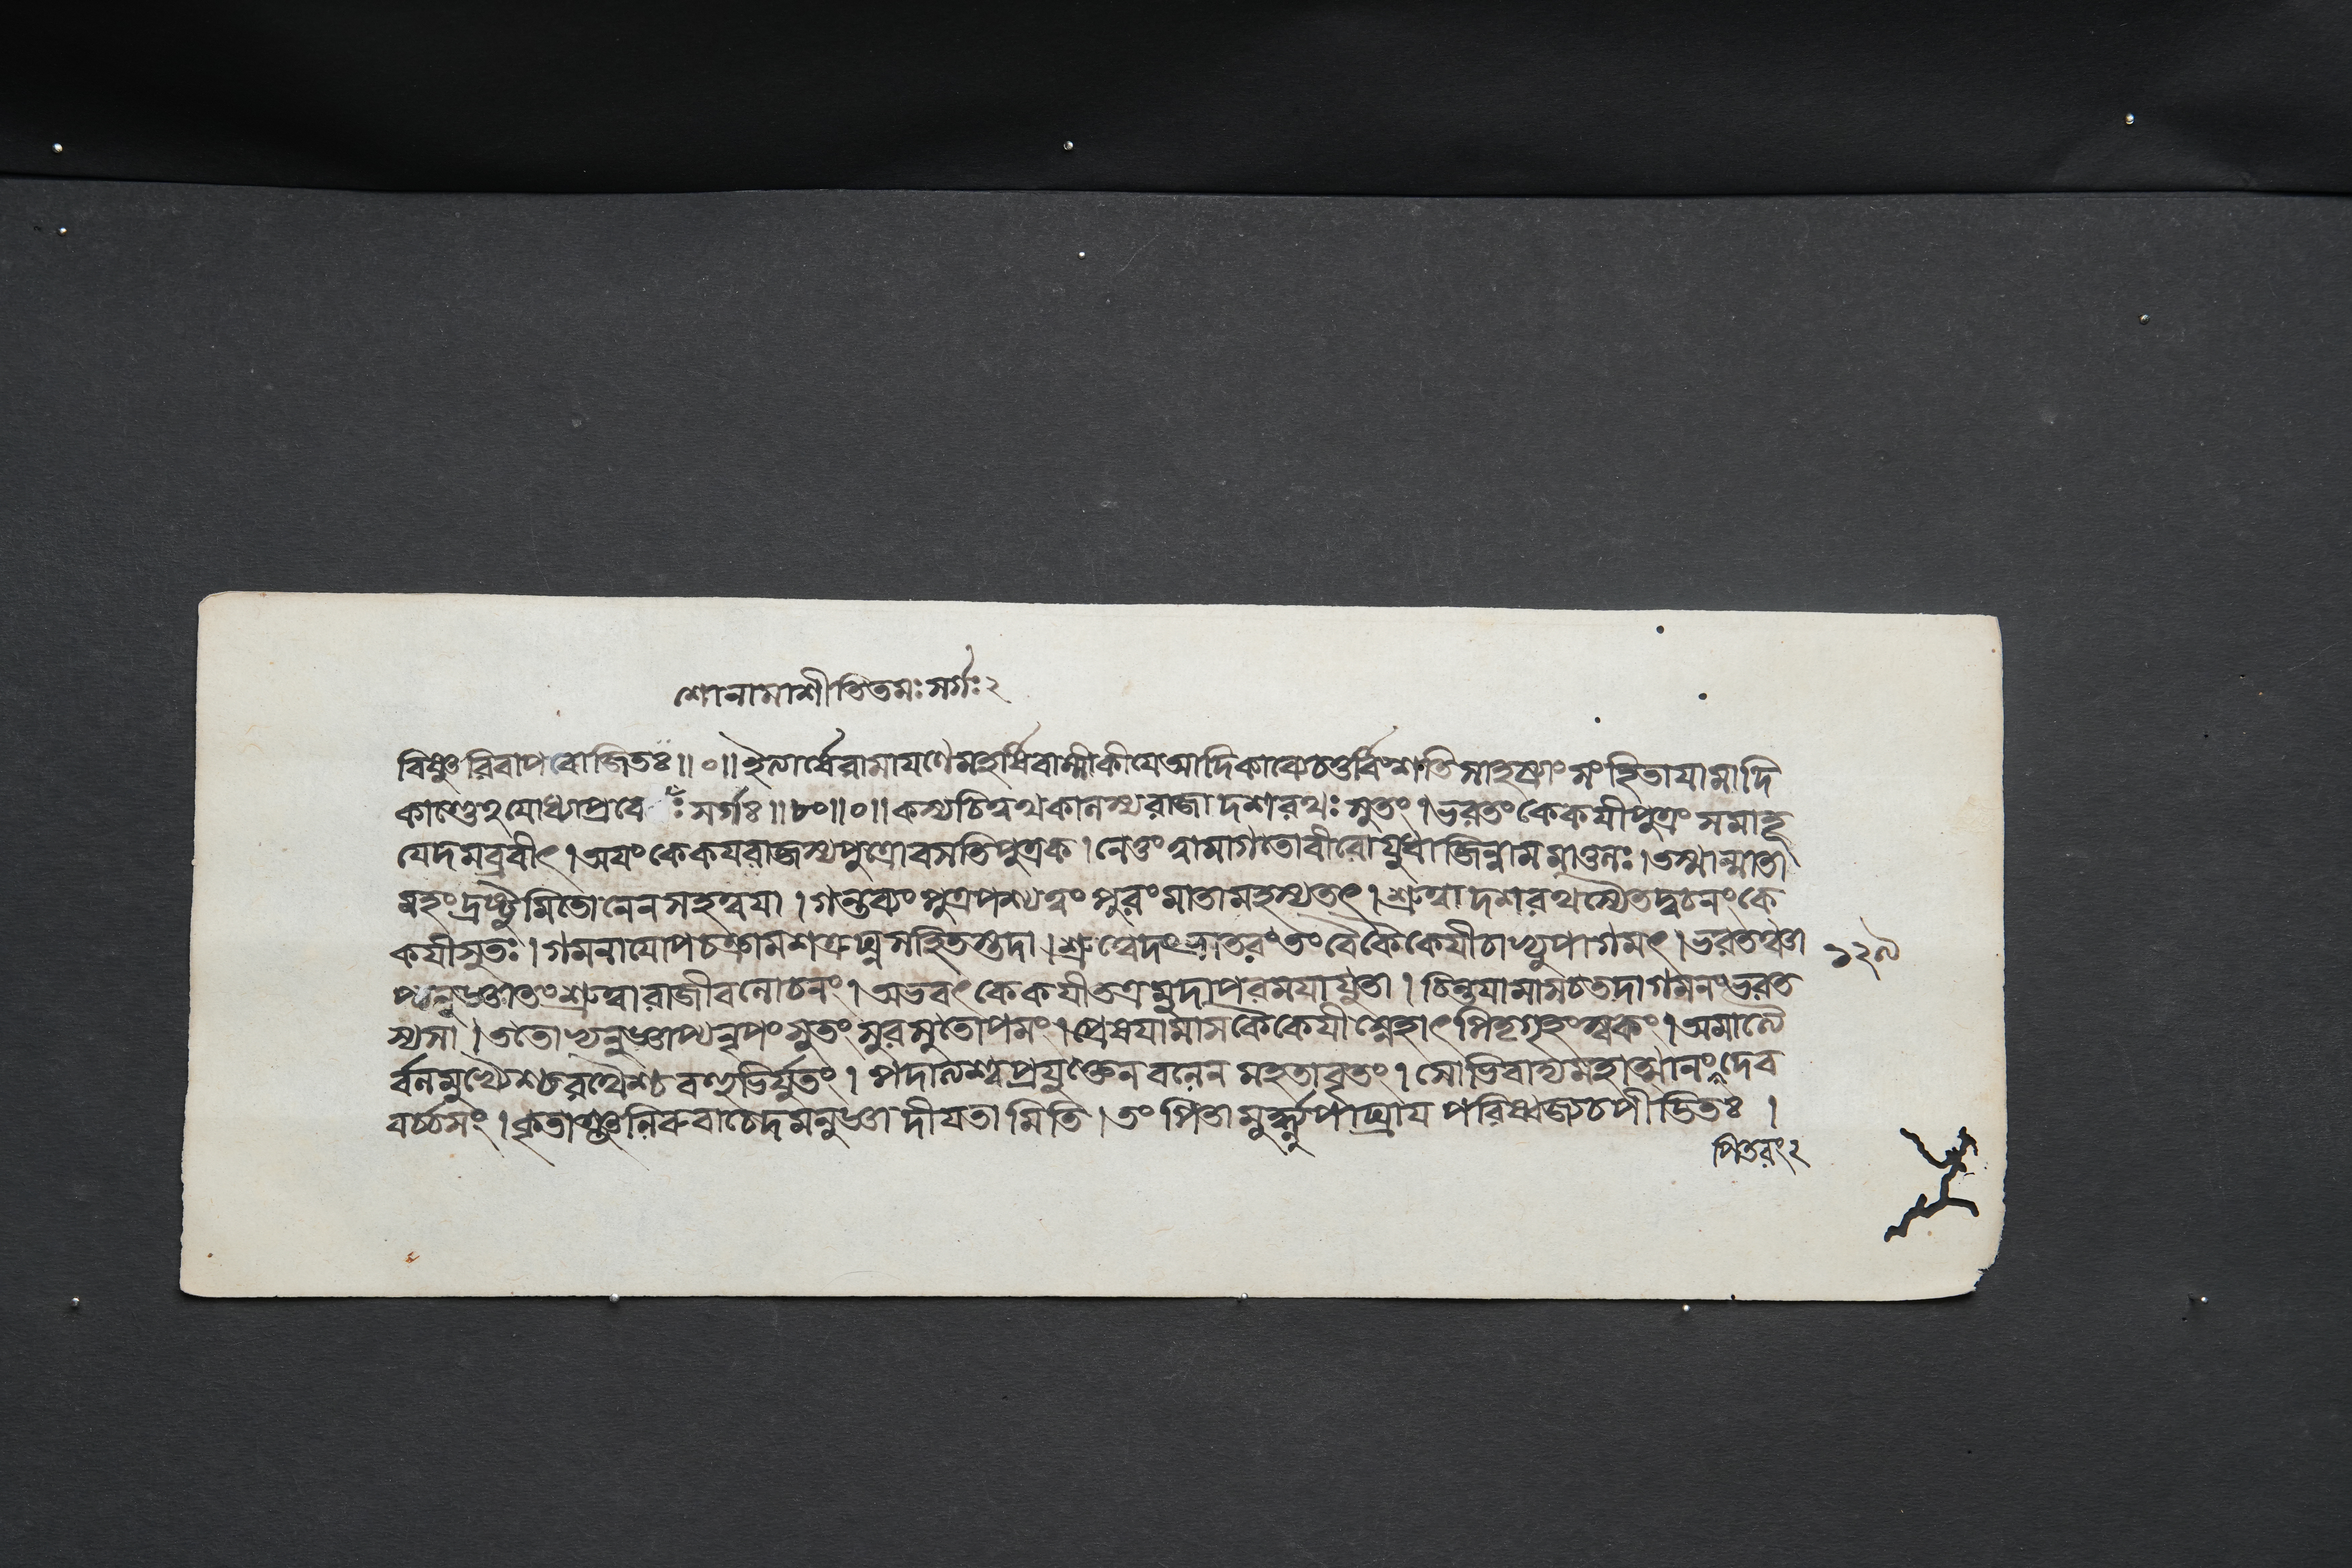 শোনামাশীতিতমঃ সর্গঃ ২
বিষ্ণুরিবাপরোজিতঃ ॥ ০ ॥ ইত্যার্ষে রামাযণে মহর্ষিবাল্মীকীযে আদিকাব্যে চতুর্বিংশতিসাহস্র্যাং সংহিতাযামাদি
কাণ্ডেঽযোধ্যাপ্রবে ঃ সর্গঃ ॥ ৮০ ॥ ০ ॥ কস্যচিত্বথকালস্য রাজা দশরথঃ সুতং । ভরতং কেকযীপুত্রং সমাহূ
যেদমব্রবীৎ । অযং কেকযরাজস্য পুত্রো বসতি পুত্রক । নেতুং ত্বামাগতো বীরো যুধাজিন্নাম মাতুলঃ । তস্মান্মাতা
মহং দ্রষ্টুমিতোনেন সহ ত্বযা । গন্তব্যং পুত্র পশ্য ত্বং পুরং মাতামহস্য তৎ । শ্রুত্বা দশরথস্যৈতদ্বচনং কে
কযীসুতঃ । গমনাযোপচক্রাম শত্রুঘ্নসহিতস্তদা । শ্রুত্বেদং ভ্রাতরং তং বৈ কৈকেযী চাপ্যুপাগমৎ । ভরতঞ্চা
১২৯
প্যনুজ্ঞাতং শ্রুত্বা রাজীবলোচনং । অভবৎ কেকযী তত্র মুদা পরমযা যুতা । চিন্তযামাস চ তদা গমনং ভরত
স্য সা । ততোপ্যনুজ্ঞাপ্য নৃপং সুতং সুরসুতোপমং । প্রেষযামাস কৈকেযী স্নেহাৎ পিতৃগৃহং স্বকং । অমাত্যৈ
র্বলমুখ্যৈশ্চ রথৈশ্চ বহুভির্যুতং । পদাত্যশ্বপ্রযুক্তেন বলেন মহতাবৃতং । সোভিবাদ্য মহাত্মানং দেব
বর্চ্চসং । কৃতাঞ্জলিরুবাচেদমনুজ্ঞা দীযতামিতি । তং পিতা মূর্দ্ধ্ন্যুপাঘ্রায পরিষ্বজ্য চ পীডিতঃ ।
পিতরং ২